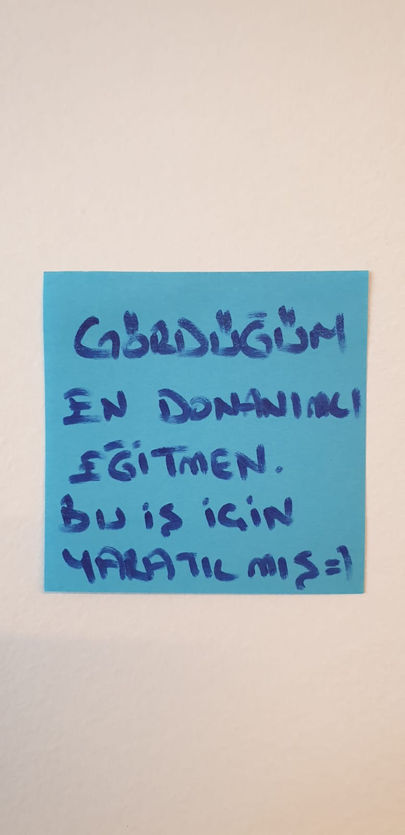 GÖRDÜĞÜM
EN DONANIMLI
EĞİTMEN.
BU İŞ İÇİN
YARATIL MIŞ=)